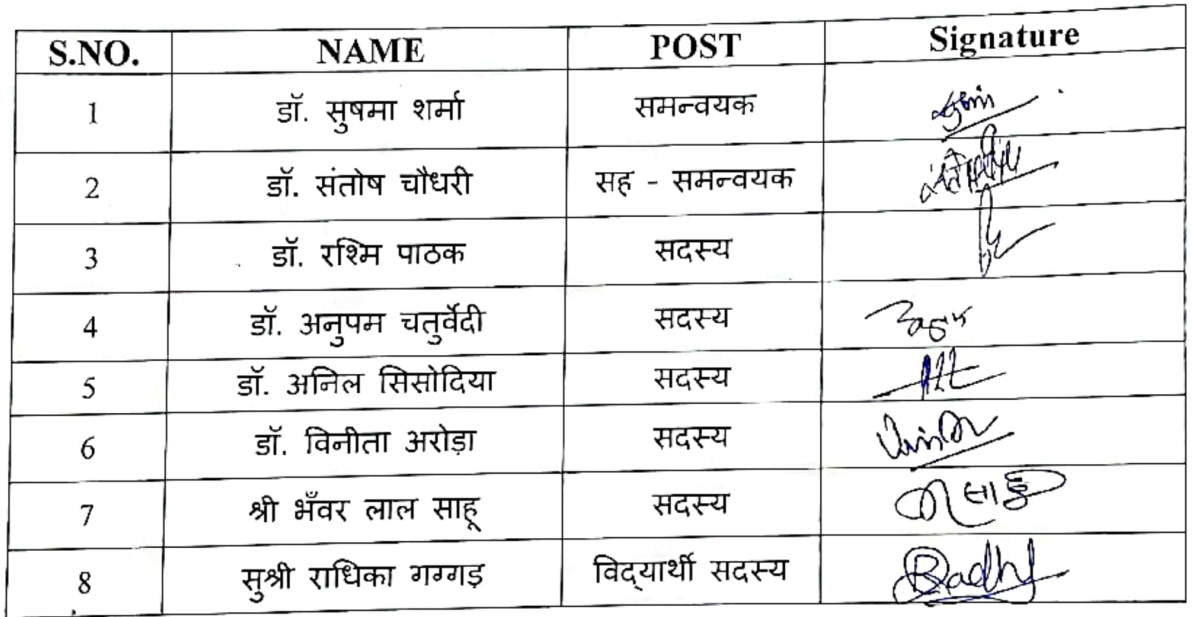 S.NO. NAME POST Signature
1 डॉ. सुषमा शर्मा समन्वयक
2 डॉ. संतोष चौधरी सह - समन्वयक
3 डॉ. रश्मि पाठक सदस्य
4 डॉ. अनुपम चतुर्वेदी सदस्य
5 डॉ. अनिल सिसोदिया सदस्य
6 डॉ. विनीता अरोड़ा सदस्य
7 श्री भँवर लाल साहू सदस्य साहू
8 सुश्री राधिका गग्गड़ विद्यार्थी सदस्य